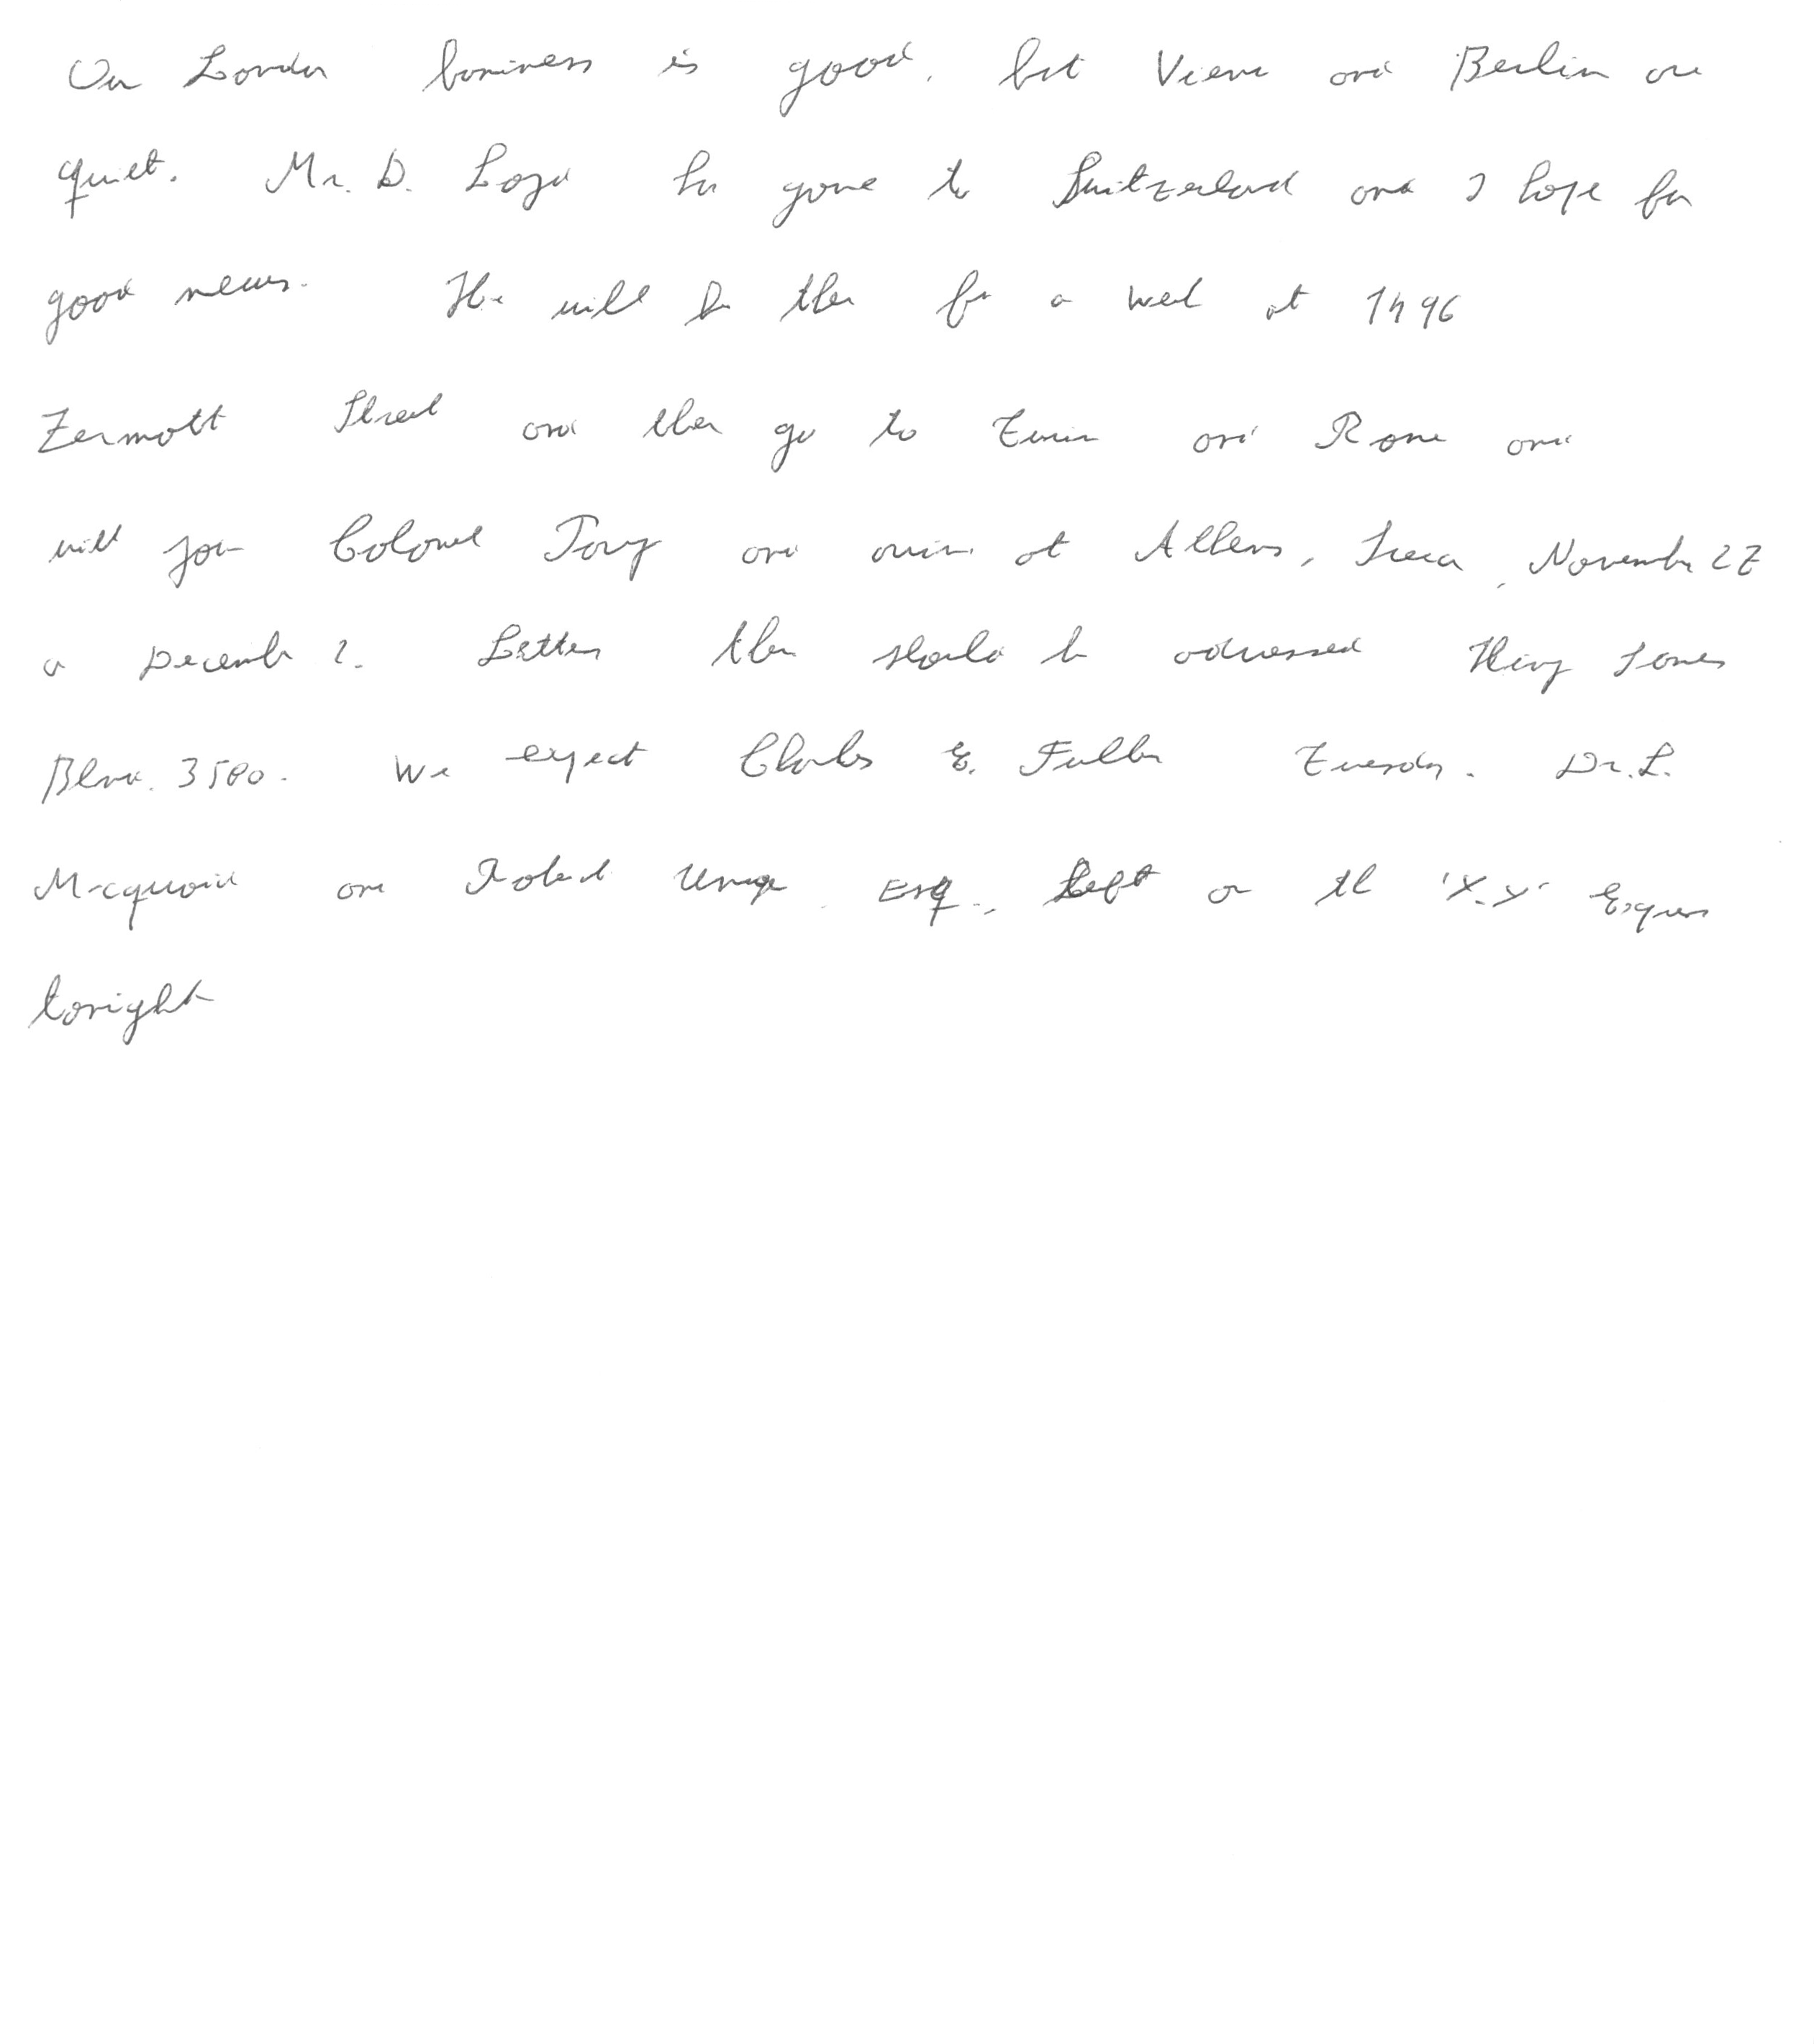 Our London business is good, but Vienna and Berlin are
quiet. Mr. D. Loyd has gone to Switzerland and I hope for
good news. He will be there for a week at 1496
Zermott Street and then go to Turin and Rome and
will join Colonel Parry and arrive at Athens, Greece, November 27
or December 2. Letters there should be addressed King James
Blvd. 3580. We expect Charles E. Fuller Tuesday. Dr. L.
Mcquaid and Robert Unger, Esq., left on the 'X.Y' Express
tonight